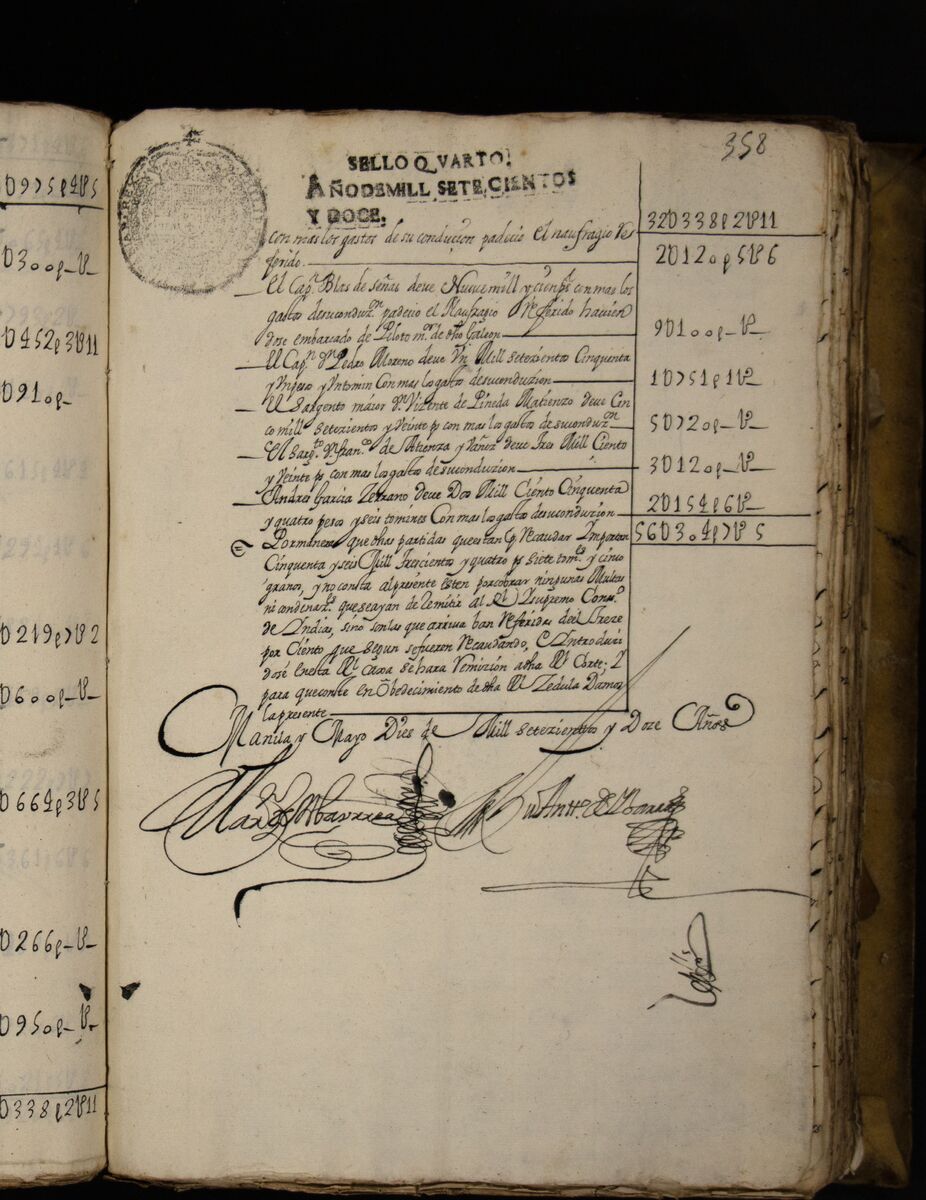 358
SELLO QVARTO,
AÑO DE MILL SETECIENTOS
Y DOCE.
32U338p2t11
con mas los gastos de su conducion padecio el naufragio Re
ferido. 2U120p5t6
El Capn. Blas de señas deve Nueve mill y cien ps con mas los
gastos de su conduzn. padecio el Naufragio Referido havien
dose embarcado de Piloto mor. de dho Galeon 9U100p_t_
El Capn. Dn. Pedro Moreno deve Vn Mill setezientos Cinquenta
y Vn peso y Vn tomin Con mas los gastos de su conduzion 1U751p1t_
El Sargento maior Dn. Vizente de Pineda Matienzo deve Cin
co mill setezientos y veinte ps con mas los gastos de su conduzon. 5U720_t_
El Sargto. Dn. Franco. de Atienza y Vañez deve tres Mill Ciento
y Veinte ps con mas los gastos de su conduzion 3U120p_t_
Andres Garcia Serrano deve Dos Mill Ciento Cinquenta
y quatro pesos y seis tomines Con mas los gastos de su conduzion 2U154p6t_
56U304p7t5
Por manera que dhas partidas que estan por Recaudar Ymportan
Cinquenta y seis Mill trescientos y quatro ps siete tomes. y cinco
granos, y no consta al presente esten por cobrar ningunas Multas
ni condenazs. que se ayan de Remitir al Rl. Y supremo Conso.
de Indias, sino son las que arriva ban Referidas del treze
por Ciento que segun se fueron Recaudando, E Introduci
dose en esta Rl. Caxa se hara Remizion a dha Rl. Corte; Y
para que conste en Obedecimiento de dha Rl. Zedula Damos
la presente
Manila y Mayo Dies de Mill setezientos y Doze Años
0975p4t5
U300p_t_
U452p3t11
U91op_
U219p7t2
U600p_t_
U664p3t5
U266p_t_
U950p_t_
U338p2t11